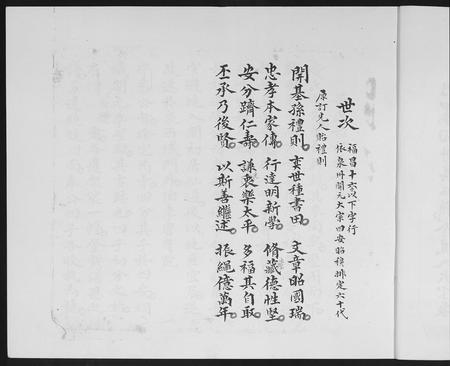 世次
福昌十叁以下字行
依泉州開元大宗四安昭穆排定六十代
原訂允人昭禮則
開基孫禮則。奕世種書田。文章昭國瑞。
忠孝本家傳。行達明新學。脩藏德性堅。
安分躋仁壽。謙衷樂太平。多福其自取。
丕承乃後賢。以斯善繼述。振繩億萬年。